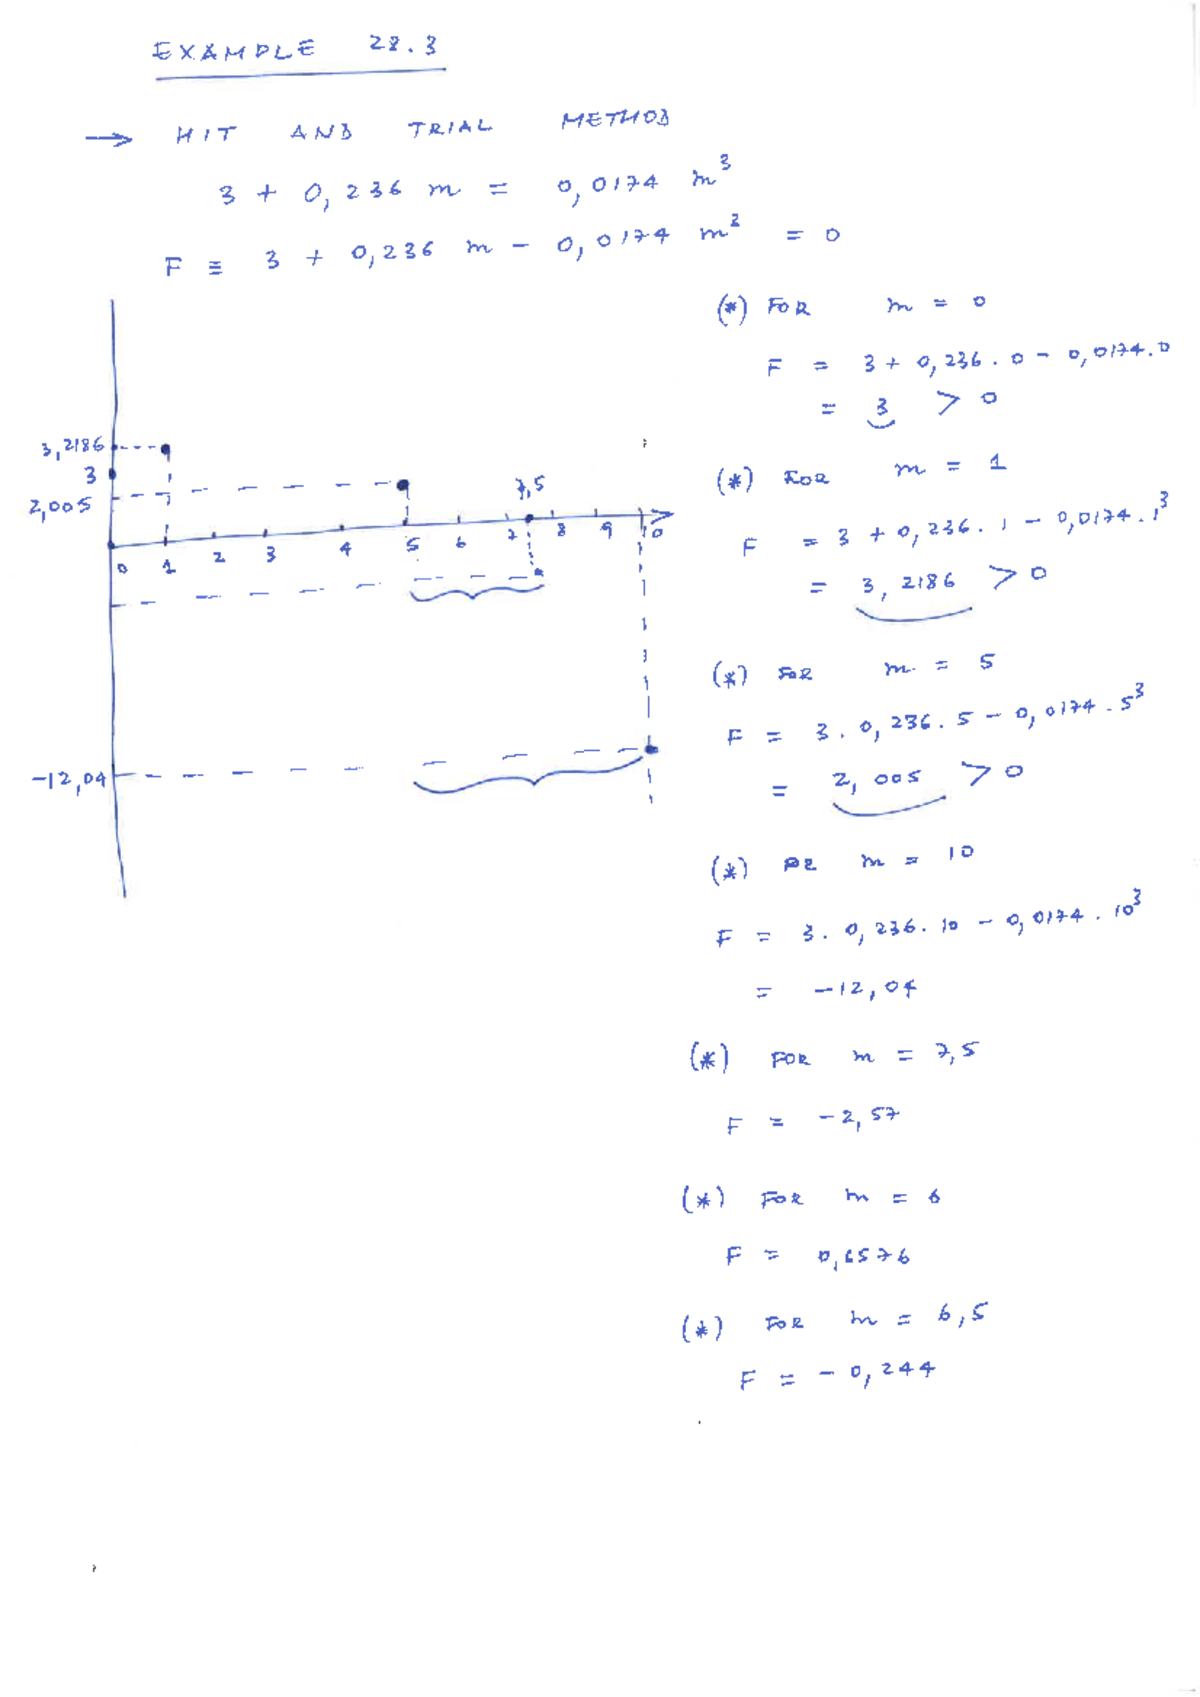 EXAMPLE 28.3
→ HIT AND TRIAL METHOD
3 + 0,236 m = 0,0174 m³
F ≡ 3 + 0,236 m - 0,0174 m² = 0
(*) FOR m = 0
F = 3 + 0,236 . 0 - 0,0174.0
= 3 > 0
(*) FOR m = 1
F = 3 + 0,236. 1 - 0,0174.1³
= 3,2186 > 0
(*) FOR m = 5
F = 3 . 0,236. 5 - 0,0174 . 5³
= 2,005 > 0
(*) m = 10
F = 3. 0,236. 10 - 0,0174 . 10³
= -12,04
(*) FOR m = 7,5
F = -2,57
(*) FOR m = 6
F = 0,6576
(*) FOR m = 6,5
F = - 0,244
3,2186
3
2,005
7,5
0 1 2 3 4 5 6 7 8 9 10
-12,04